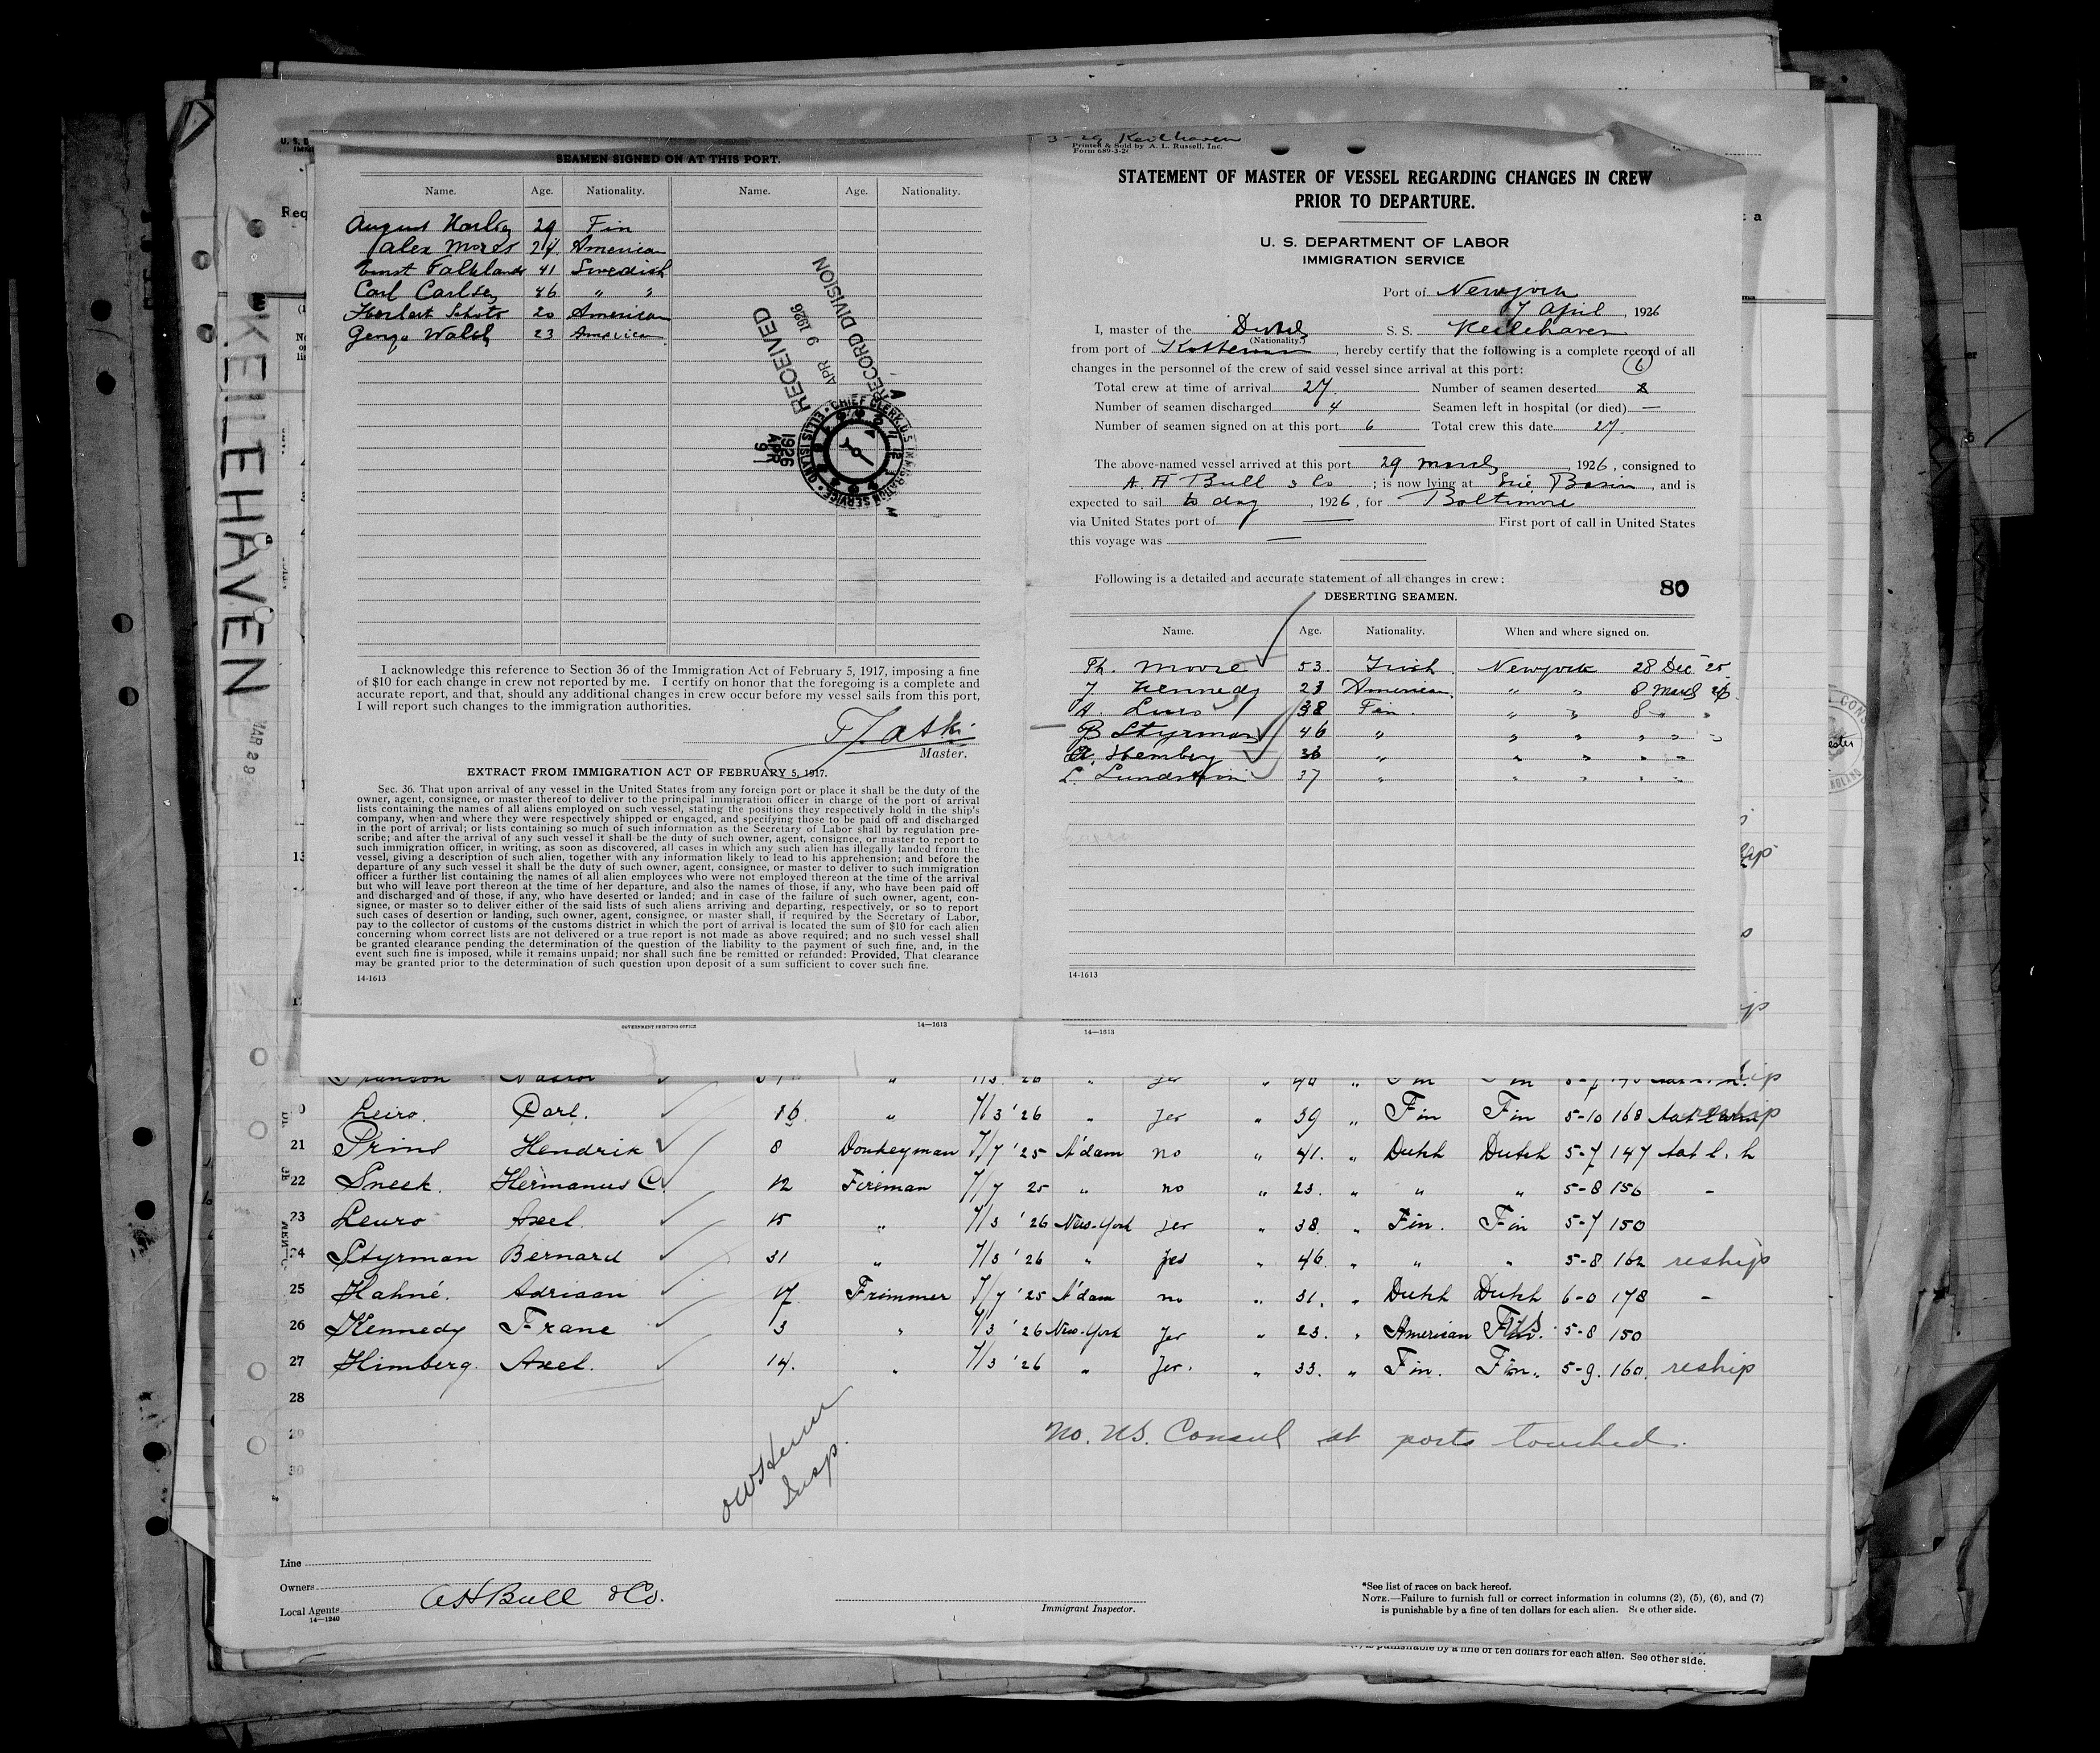 KEILEHAVEN
MAR 29
SEAMEN SIGNED ON AT THIS PORT.
Name. Age. Nationality. Name. Age. Nationality.
August 29 Fin
Alex 24 American
Ernst Falklands 41 Swedish
Carl Carlsen 46 " "
Herbert 20 American
George Walsh 23 American
RECEIVED
APR 9 1926
RECORD DIVISION
CHIEF CLERK, U.S. IMMIGRATION SERVICE • ELLIS ISLAND
1926 APR 9
I acknowledge this reference to Section 36 of the Immigration Act of February 5, 1917, imposing a fine
of $10 for each change in crew not reported by me. I certify on honor that the foregoing is a complete and
accurate report, and that, should any additional changes in crew occur before my vessel sails from this port,
I will report such changes to the immigration authorities.
Master.
EXTRACT FROM IMMIGRATION ACT OF FEBRUARY 5, 1917.
Sec. 36. That upon arrival of any vessel in the United States from any foreign port or place it shall be the duty of the
owner, agent, consignee, or master thereof to deliver to the principal immigration officer in charge of the port of arrival
lists containing the names of all aliens employed on such vessel, stating the positions they respectively hold in the ship's
company, when and where they were respectively shipped or engaged, and specifying those to be paid off and discharged
in the port of arrival; or lists containing so much of such information as the Secretary of Labor shall by regulation pre-
scribe; and after the arrival of any such vessel it shall be the duty of such owner, agent, consignee, or master to report to
such immigration officer, in writing, as soon as discovered, all cases in which any such alien has illegally landed from the
vessel, giving a description of such alien, together with any information likely to lead to his apprehension; and before the
departure of any such vessel it shall be the duty of such owner, agent, consignee, or master to deliver to such immigration
officer a further list containing the names of all alien employees who were not employed thereon at the time of the arrival
but who will leave port thereon at the time of her departure, and also the names of those, if any, who have been paid off
and discharged and of those, if any, who have deserted or landed; and in case of the failure of such owner, agent, con-
signee, or master so to deliver either of the said lists of such aliens arriving and departing, respectively, or so to report
such cases of desertion or landing, such owner, agent, consignee, or master shall, if required by the Secretary of Labor,
pay to the collector of customs of the customs district in which the port of arrival is located the sum of $10 for each alien
concerning whom correct lists are not delivered or a true report is not made as above required; and no such vessel shall
be granted clearance pending the determination of the question of the liability to the payment of such fine, and, in the
event such fine is imposed, while it remains unpaid; nor shall such fine be remitted or refunded: Provided, That clearance
may be granted prior to the determination of such question upon deposit of a sum sufficient to cover such fine.
14-1613
GOVERNMENT PRINTING OFFICE 14—1613
3-29 Keilhaven
Printed & Sold by A. L. Russell, Inc.
Form 689-3-26
STATEMENT OF MASTER OF VESSEL REGARDING CHANGES IN CREW
PRIOR TO DEPARTURE.
U. S. DEPARTMENT OF LABOR
IMMIGRATION SERVICE
Port of New york
7 April, 1926
I, master of the Dutch S. S. Keilehaven
(Nationality.)
from port of Rotterdam, hereby certify that the following is a complete record of all
changes in the personnel of the crew of said vessel since arrival at this port: 6
Total crew at time of arrival 27. Number of seamen deserted
Number of seamen discharged 4 Seamen left in hospital (or died) —
Number of seamen signed on at this port 6 Total crew this date 27.
The above-named vessel arrived at this port 29 march, 1926, consigned to
A. H Bull & Co; is now lying at Erie Basin, and is
expected to sail to day, 1926, for Baltimore
via United States port of — First port of call in United States
this voyage was —
Following is a detailed and accurate statement of all changes in crew:
80
DESERTING SEAMEN.
Name. Age. Nationality. When and where signed on.
Th. Moore 53. Irish New york 28 Dec 25
J Kennedy 23 American " " 8 March 26
A. Leuro 38 Fin. " " 8 " "
B Styrman 46 " " " " "
A. Hemberg 36 " " " " "
L. Lundstrom 37 " " " " "
14-1613
14—1613
Leiro. Carl. 16 " 7/3 '26 " yes " 39 " Fin Fin 5-10 168 reship
21 Prins Hendrik 8 Donkeyman 7/7 '25 A'dam no " 41. " Dutch Dutch 5-7 147 tat l. h
22 Sneek. Hermanus C. 12 Fireman 7/7 25 " no " 23. " " " 5-8 156 -
23 Leuro Axel. 15 " 7/3 '26 New-York yes " 38. " Fin. Fin 5-7 150
24 Styrman Bernard 31 " 7/3 '26 " yes " 46. " " " 5-8 162 reship
25 Hahné. Adriaan 17 Trimmer 7/7 '25 A'dam no " 31. " Dutch Dutch 6-0 178 -
26 Kennedy Franc 3 " 7/3 '26 New-York yes " 23. " American 5-8 150
27 Himberg. Axel. 14. " 7/3 '26 " yes. " 33. " Fin. Fin. 5-9. 160. reship
28
29 No. US. Consul at ports touched.
30
Insp.
Line
Owners
Local Agents A H Bull & Co.
14—1240
Immigrant Inspector.
*See list of races on back hereof.
NOTE.—Failure to furnish full or correct information in columns (2), (5), (6), and (7)
is punishable by a fine of ten dollars for each alien. See other side.
is punishable by a fine of ten dollars for each alien. See other side.